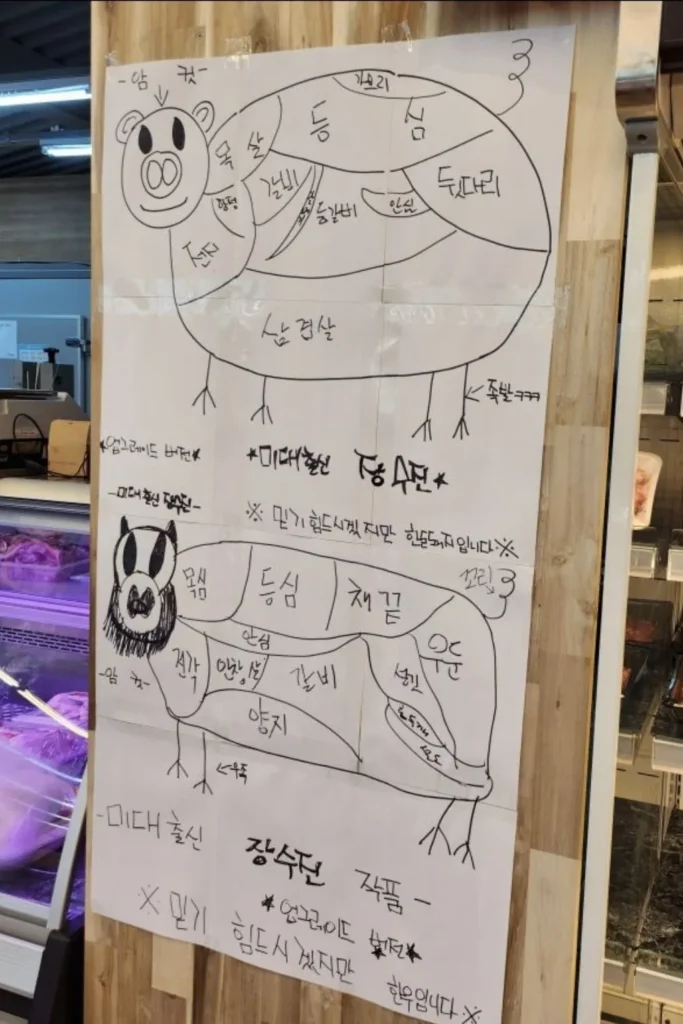 -암 컷-
가브리
등 심
목 살
갈비
항정
등갈비
안심
뒷다리
전지
삼겹살
족발ㅋㅋㅋ
*업그레이드 버전*
*미대출신 장수전*
-미대출신 장수전-
※ 믿기 힘드시겠지만 한돈돼지입니다※
꼬리
목심
등심
채끝
우둔
안심
전각
안창살
갈비
설깃
-암 컷-
양지
홍두깨
우족
-미대출신 장수전 작품-
*업그레이드 버전*
※ 믿기 힘드시겠지만 한우입니다※